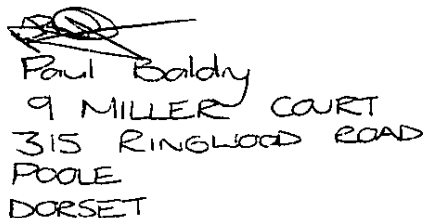 Paul Baldry
9 MILLER COURT
315 RINGWOOD ROAD
POOLE
DORSET